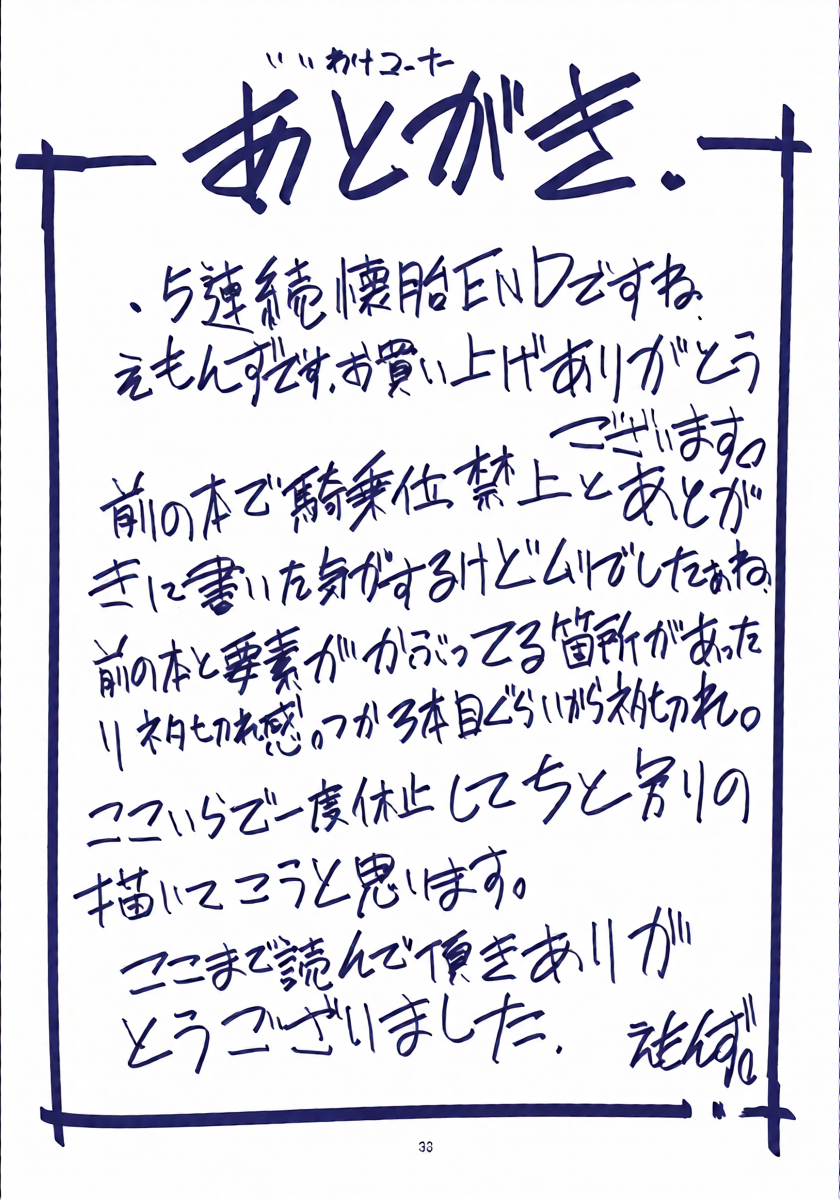 いいわけコーナー
あとがき.
・5連続懐胎ENDですね、
えもんずです、お買い上げありがとう
ございます。
前の本で騎乗位禁止とあとが
きに書いた気がするけどムリでしたぁね、
前の本と要素がかぶってる箇所があった
りネタ切れ感。つか3本目ぐらいからネタ切れ。
ここいらで一度休止してちと別の
描いてこうと思います。
ここまで読んで頂きありが
とうございました.
えもんず。
38